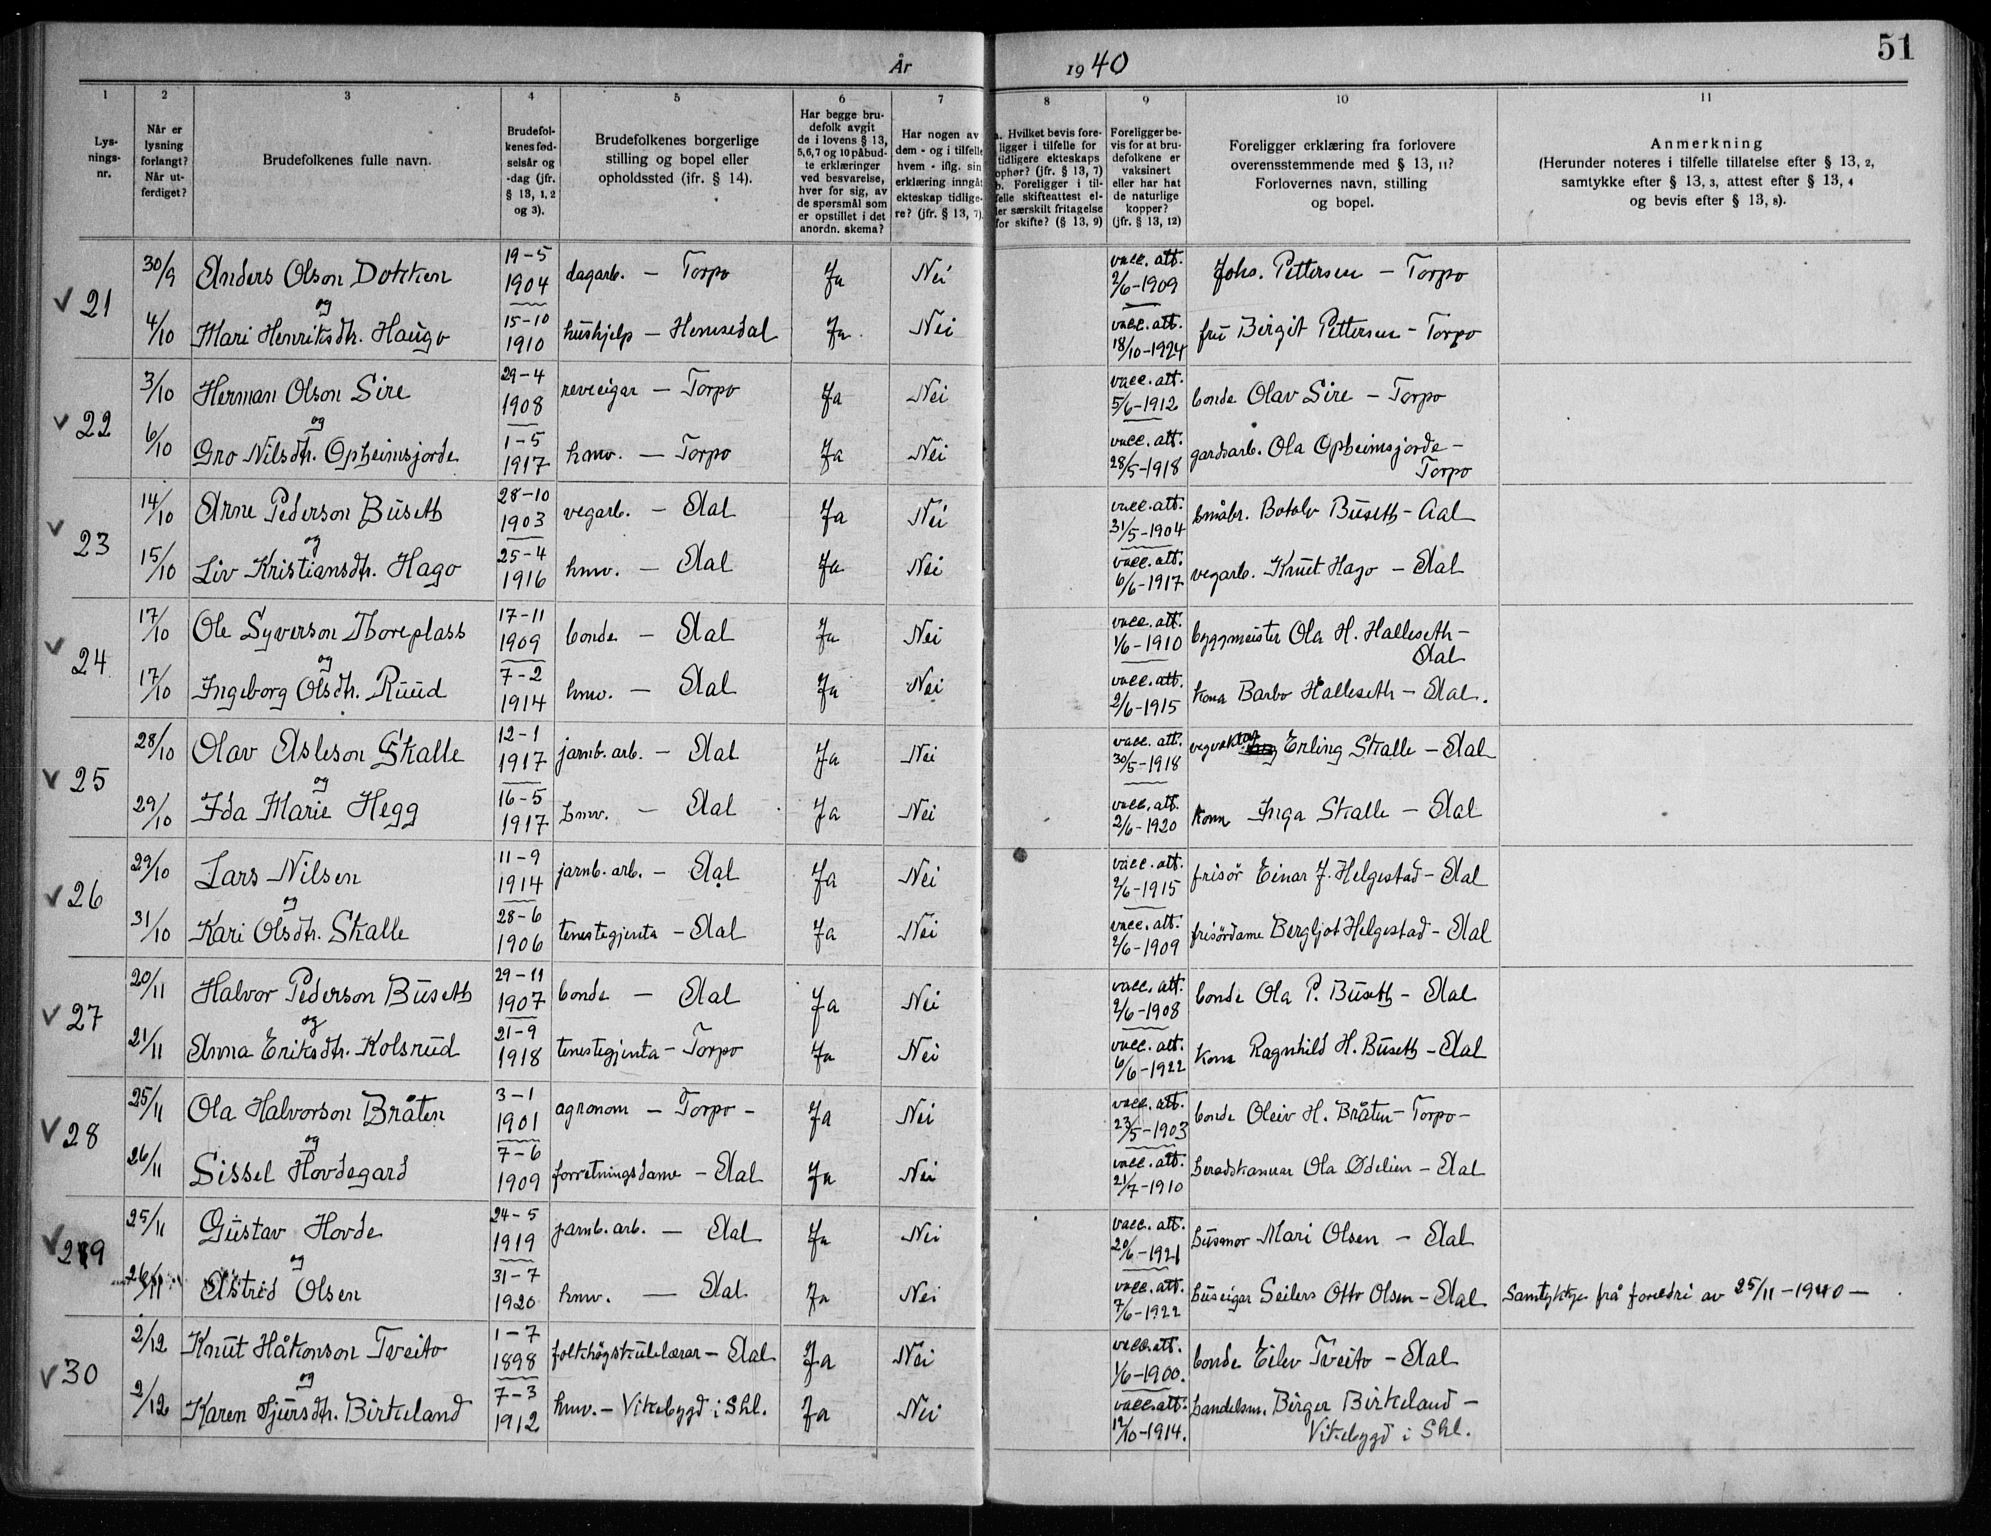 År 1940
51
1 2 3 4 5 6 7 8 9 10 11
Lys-
nings-
nr.
Når er
lysning
forlangt?
Når ut-
ferdiget?
Brudefolkenes fulle navn.
Brudefol-
kenes fød-
selsår og
-dag (jfr.
§ 13, 1, 2
og 3).
Brudefolkenes borgerlige
stilling og bopel eller
opholdssted (jfr. § 14).
Har begge bru-
defolk avgit
de i lovens § 13,
5, 6, 7 og 10 påbud-
te erklæringer
ved besvarelse,
hver for sig, av
de spørsmål som
er opstillet i det
anordn. skema?
Har nogen av
dem - og i tilfelle
hvem - iflg. sin
erklæring inngåt
ekteskap tidlige-
re? (jfr. § 13, 7).
a. Hvilket bevis fore-
ligger i tilfelle for
tidligere ekteskaps
ophør? (jfr. § 13, 7)
b. Foreligger i til-
felle skifteattest el-
ler særskilt fritagelse
for skifte? (§ 13, 9)
Foreligger be-
vis for at bru-
defolkene er
vaksinert
eller har hat
de naturlige
kopper?
(jfr. § 13, 12)
Foreligger erklæring fra forlovere
overensstemmende med § 13, 11?
Forlovernes navn, stilling
og bopel.
Anmerkning
(Herunder noteres i tilfelle tillatelse efter § 13, 2,
samtykke efter § 13, 3, attest efter § 13, 4
og bevis efter § 13, 8).
V 21 30/9 Anders Olson Dokken 19-5 1904 dagarb. - Torpo Ja Nei vacc. att. 2/6-1909 Johs. Pettersen - Torpo
og
4/10 Mari Henriksdtr. Haugo 15-10 1910 hushjelp - Hemsedal Ja Nei vacc. att. 18/10-1924 fru Birgit Pettersen - Torpo
V 22 3/10 Herman Olson Sire 29-4 1908 reveeigar - Torpo Ja Nei vacc. att. 5/6-1912 bonde Olav Sire - Torpo
og
6/10 Gro Nilsdtr. Opheimsjorde 1-5 1917 hmv. - Torpo Ja Nei vacc. att. 28/5-1918 gardsarb. Ola Opheimsjorde -
Torpo
V 23 14/10 Arne Pederson Buseth 28-10 1903 vegarb. - Aal Ja Nei vacc. att. 31/5-1904 småbr. Botolv Buseth - Aal
og
15/10 Liv Kristiansdtr. Hago 25-4 1916 hmv. - Aal Ja Nei vacc. att. 6/6-1917 vegarb. Knut Hago - Aal
V 24 17/10 Ole Syverson Thoreplass 17-11 1909 bonde - Aal Ja Nei vacc. att. 1/6-1910 byggmeister Ola H. Halleseth -
Aal
og
17/10 Ingeborg Olsdtr. Ruud 7-2 1914 hmv. - Aal Ja Nei vacc. att. 2/6-1915 kona Barbo Halleseth - Aal.
V 25 28/10 Olav Asleson Skalle 12-1 1917 jarnb. arb. - Aal Ja Nei vacc. att. 30/5-1918 vegvaktar Erling Skalle - Aal
og
29/10 Ida Marie Hegg 16-5 1917 hmv. - Aal Ja Nei vacc. att. 2/6-1920 kona Inga Skalle - Aal
V 26 29/10 Lars Nilsen 11-9 1914 jarnb. arb. - Aal Ja Nei vacc. att. 2/6-1915 frisör Einar J. Helgestad - Aal
og
31/10 Kari Olsdtr. Skalle 28-6 1906 tenestegjenta - Aal Ja Nei vacc. att. 2/6-1909 frisördame Bergljot Helgestad - Aal
V 27 20/11 Halvor Pederson Buseth 29-11 1907 bonde - Aal Ja Nei vacc. att. 2/6-1908 bonde Ola P. Buseth - Aal
og
21/11 Anna Eriksdtr. Kolsrud 21-9 1918 tenestegjenta - Torpo Ja Nei vacc. att. 6/6-1922 kona Ragnhild H. Buseth - Aal
V 28 25/11 Ola Halvorson Bråten 3-1 1901 agronom - Torpo - Ja Nei vacc. att. 23/5-1903 bonde Oleiv H. Bråten - Torpo -
og
26/11 Sissel Hovdegard 7-6 1909 forretningsdame - Aal Ja Nei vacc. att. 21/7-1910 heradskasserar Ola Ødelien - Aal
V 29 25/11 Gustav Hovde 24-5 1919 jarnb. arb. - Aal Ja Nei vacc. att. 20/6-1921 husmor Mari Olsen - Aal
og
26/11 Astrid Olsen 31-7 1920 hmv. - Aal Ja Nei vacc. att. 7/6-1922 huseigar Otto Olsen - Aal Samtykkje frå foreldri av 25/11-1940 -
V 30 2/12 Knut Håkonson Tveito 1-7 1898 folkhögskulelærar - Aal Ja Nei vacc. att. 1/6-1900. bonde Eilev Tveito - Aal
og
2/12 Karen Sjursdtr. Birkeland 7-3 1912 hmv. - Vikebygd i Shl. Ja Nei vacc. att. 12/10-1914. handelsm. Birger Birkeland -
Vikebygd i Shl.